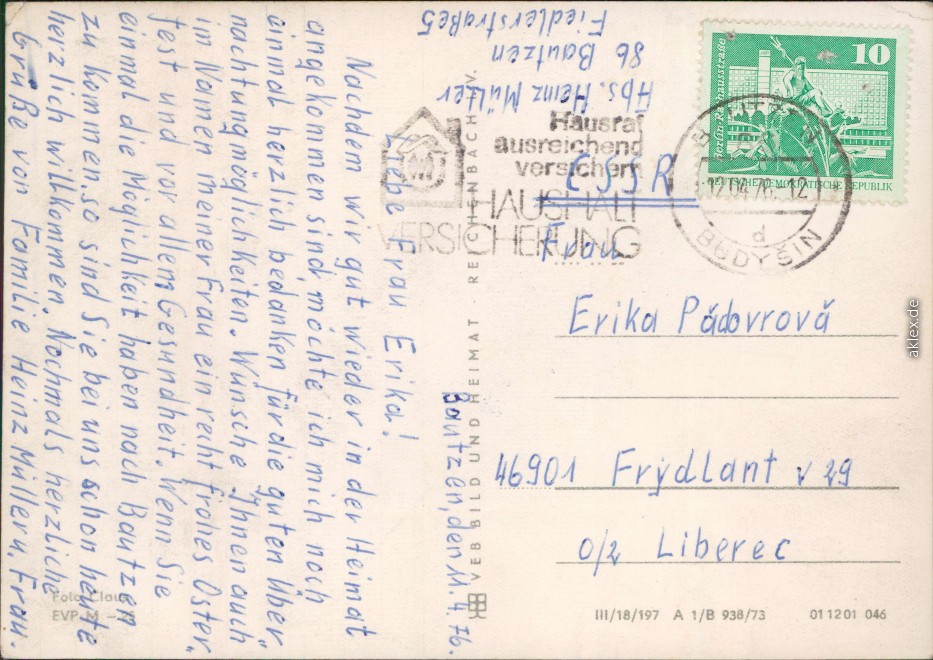 Bautzen, den 11.4.76.
Liebe Frau Erika!
Nachdem wir gut wieder in der Heimat
angekommen sind, möchte ich mich noch
einmal herzlich bedanken für die guten Über"
nachtungmöglichkeiten. Wünsche Ihnen auch
im Namen meiner Frau ein recht frohes Oster"
fest und vor allem Gesundheit. Wenn Sie
einmal die Möglichkeit haben nach Bautzen
zu kommen, so sind Sie bei uns schon heute
herzlich willkommen. Nochmals herzliche
Grüße von Familie Heinz Müller u. Frau.
Abs. Heinz Müller
86 Bautzen
Fiedlerstraße 5
10
Berlin, Rathausstraße
DEUTSCHE DEMOKRATISCHE REPUBLIK
BAUTZEN
12.04.76.-12
d
BUDYŠIN
Hausrat
ausreichend
versichern
HAUSHALT
VERSICHERUNG
ČSSR
Frau
Erika
46901 Frýdlant v 29
o/z Liberec
VEB BILD UND HEIMAT · REICHENBACH V.
Foto: Claus
EVP M
III/18/197 A 1/B 938/73 01 12 01 046
aklex.de